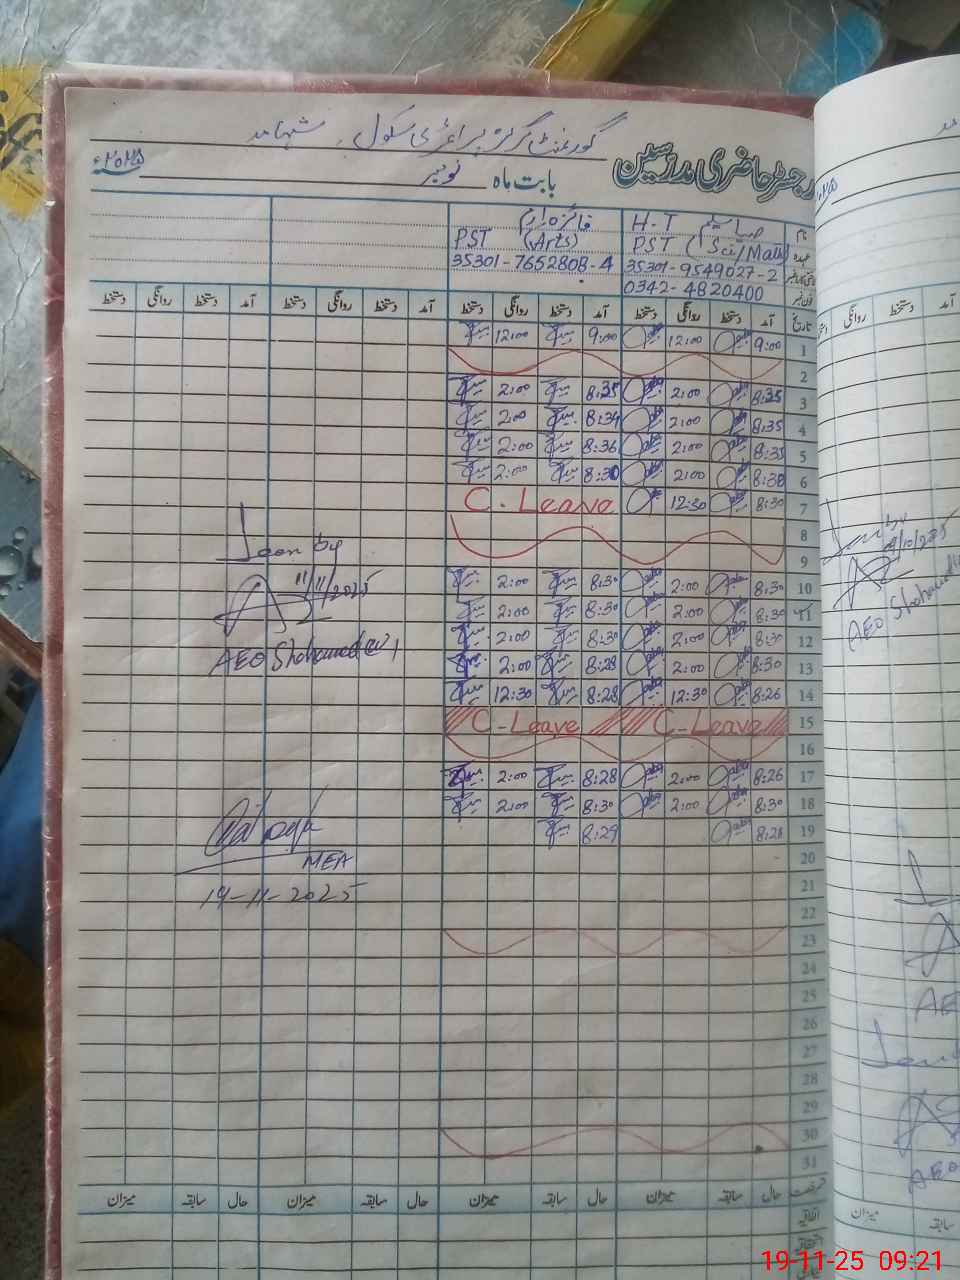 گورنمنٹ گرلز پرائمری سکول
رجسٹر حاضری مدرسین
بابت ماہ نومبر سنہ ۲۰۲۵ء
نام
H-T فائزہ ارم
عہدہ PST (Sci/Math) PST (Arts)
35301-9549027-2 35301-7652808-4
فون نمبر 0342-4820400
تاریخ آمد دستخط روانگی دستخط آمد دستخط روانگی دستخط آمد دستخط روانگی دستخط آمد دستخط روانگی دستخط
1 9:00 12:00 9:00 12:00
2
3 8:35 2:00 8:35 2:00
4 8:35 2:00 8:34 2:00
5 8:35 2:00 8:36 2:00
6 8:30 2:00 8:30 2:00
7 8:30 12:30 C-Leave
8
9
10 8:30 2:00 8:30 2:00
11 8:30 2:00 8:30 2:00
12 8:30 2:00 8:30 2:00
13 8:30 2:00 8:28 2:00
14 8:26 12:30 8:28 12:30
15 C-Leave C-Leave
16
17 8:26 2:00 8:28 2:00
18 8:30 2:00 8:30 2:00
19 8:28 8:29
20
21
22
23
24
25
26
27
28
29
30
31
Seen by
11/11/2025
AEO
MEA
19-11-2025
حال سابقہ میزان حال سابقہ میزان حال سابقہ میزان حال سابقہ میزان
اتفاقیہ
روانگی دستخط آمد
AEO
AEO
میزان سابقہ
19-11-25 09:21